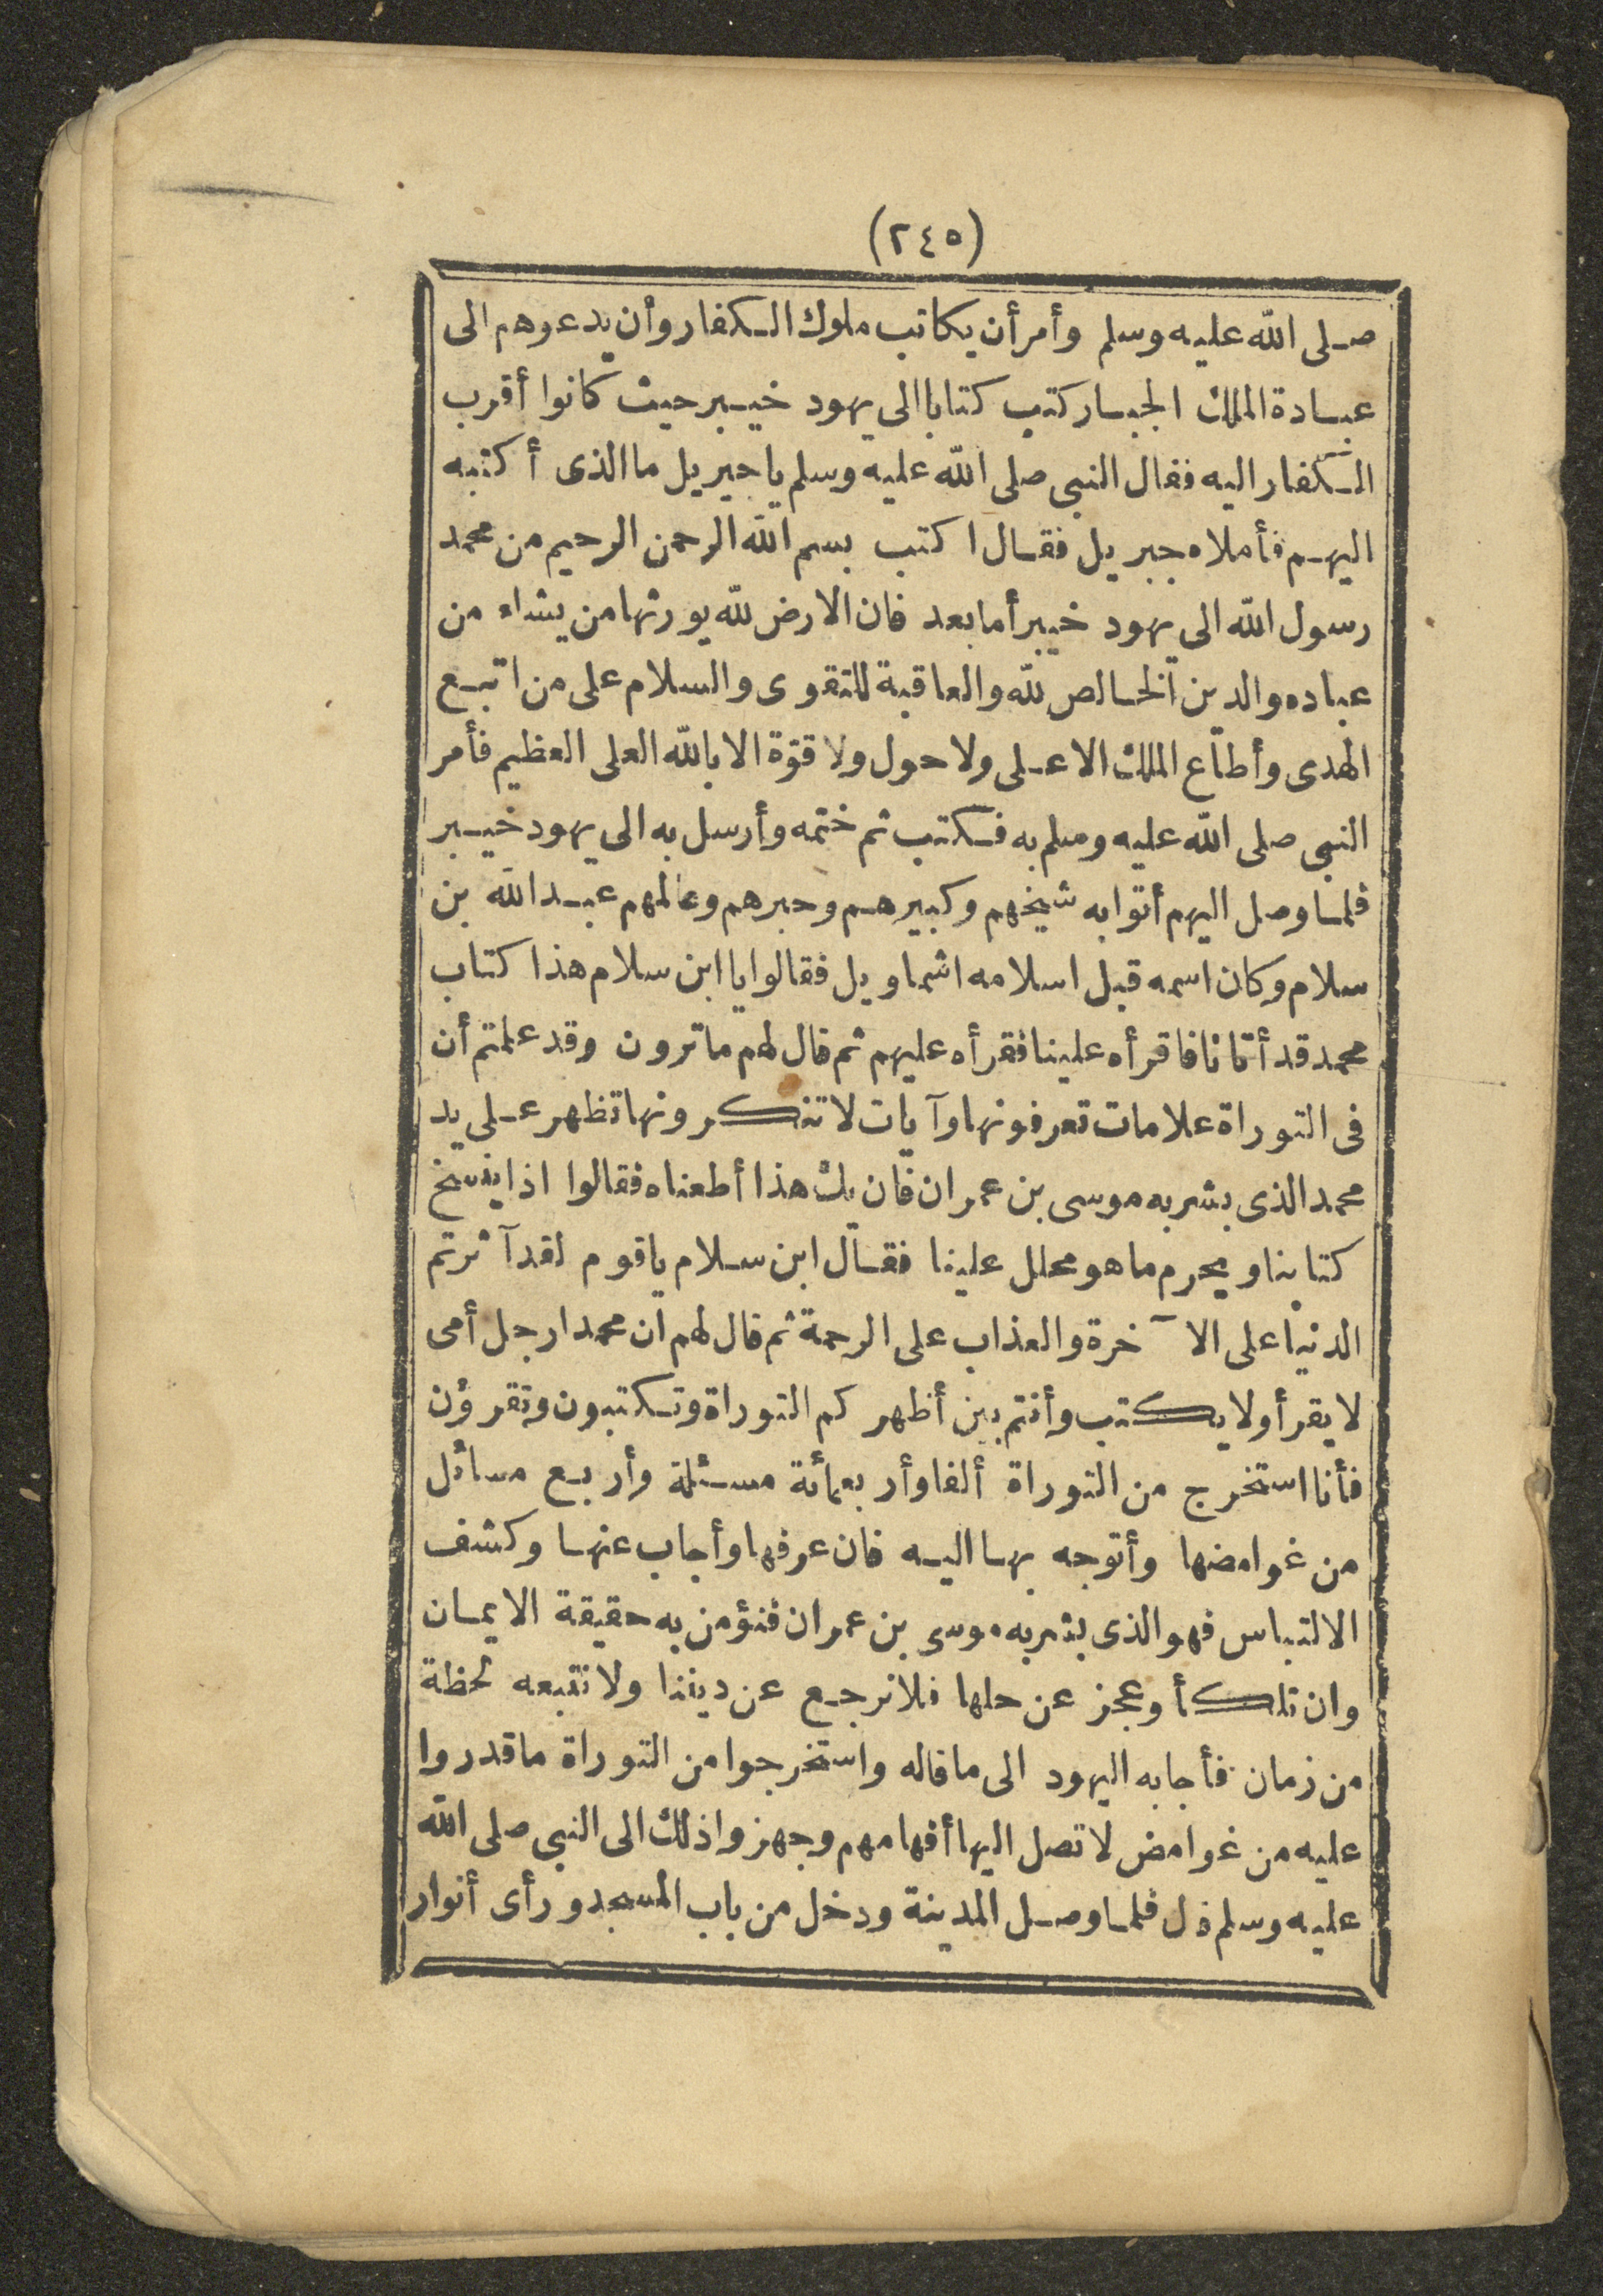 (٢٤٥)
صلى الله عليه وسلم وأمر أن يكاتب ملوك الكفار وأن يدعوهم الى
عبادة الملك الجبار كتب كتابا الى يهود خيبر حيث كانوا أقرب
الكفار اليه فقال النبى صلى الله عليه وسلم يا جبريل ما الذى أكتبه
اليهم فأملاه جبريل فقال اكتب بسم الله الرحمن الرحيم من محمد
رسول الله الى يهود خيبر أما بعد فان الارض لله يورثها من يشاء من
عباده والدين الخالص لله والعاقبة للتقوى والسلام على من اتبع
الهدى وأطاع الملك الاعلى ولا حول ولا قوّة الا بالله العلى العظيم فأمر
النبى صلى الله عليه وسلم به فكتب ثم ختمه وأرسل به الى يهود خيبر
فلما وصل اليهم أتوا به شيخهم وكبيرهم وحبرهم وعالمهم عبد الله بن
سلام وكان اسمه قبل اسلامه اشماويل فقالوا يا ابن سلام هذا كتاب
محمد قد أتانا فاقرأه علينا فقرأه عليهم ثم قال لهم ما ترون وقد علمتم أن
فى التوراة علامات تعرفونها وآيات لا تنكرونها تظهر على يد
محمد الذى بشر به موسى بن عمران فان يك هذا أطعناه فقالوا اذا ينسخ
كتابنا ويحرم ما هو محلل علينا فقال ابن سلام يا قوم لقد آثرتم
الدنيا على الآخرة والعذاب على الرحمة ثم قال لهم ان محمدا رجل أمى
لا يقرأ ولا يكتب وأنتم بين أظهركم التوراة وتكتبون وتقرؤن
فأنا استخرج من التوراة ألفا وأربعمائة مسئلة وأربع مسائل
من غوامضها وأتوجه بها اليه فان عرفها وأجاب عنها وكشف
الالتباس فهو الذى بشر به موسى بن عمران فنؤمن به حقيقة الايمان
وان تلكأ وعجز عن حلها فلا نرجع عن ديننا ولا نتبعه لحظة
من زمان فأجابه اليهود الى ما قاله واستخرجوا من التوراة ما قدروا
عليه من غوامض لا تصل اليها أفهامهم وجهزوا ذلك الى النبى صلى الله
عليه وسلم فلما وصل المدينة ودخل من باب المسجد ورأى أنوار